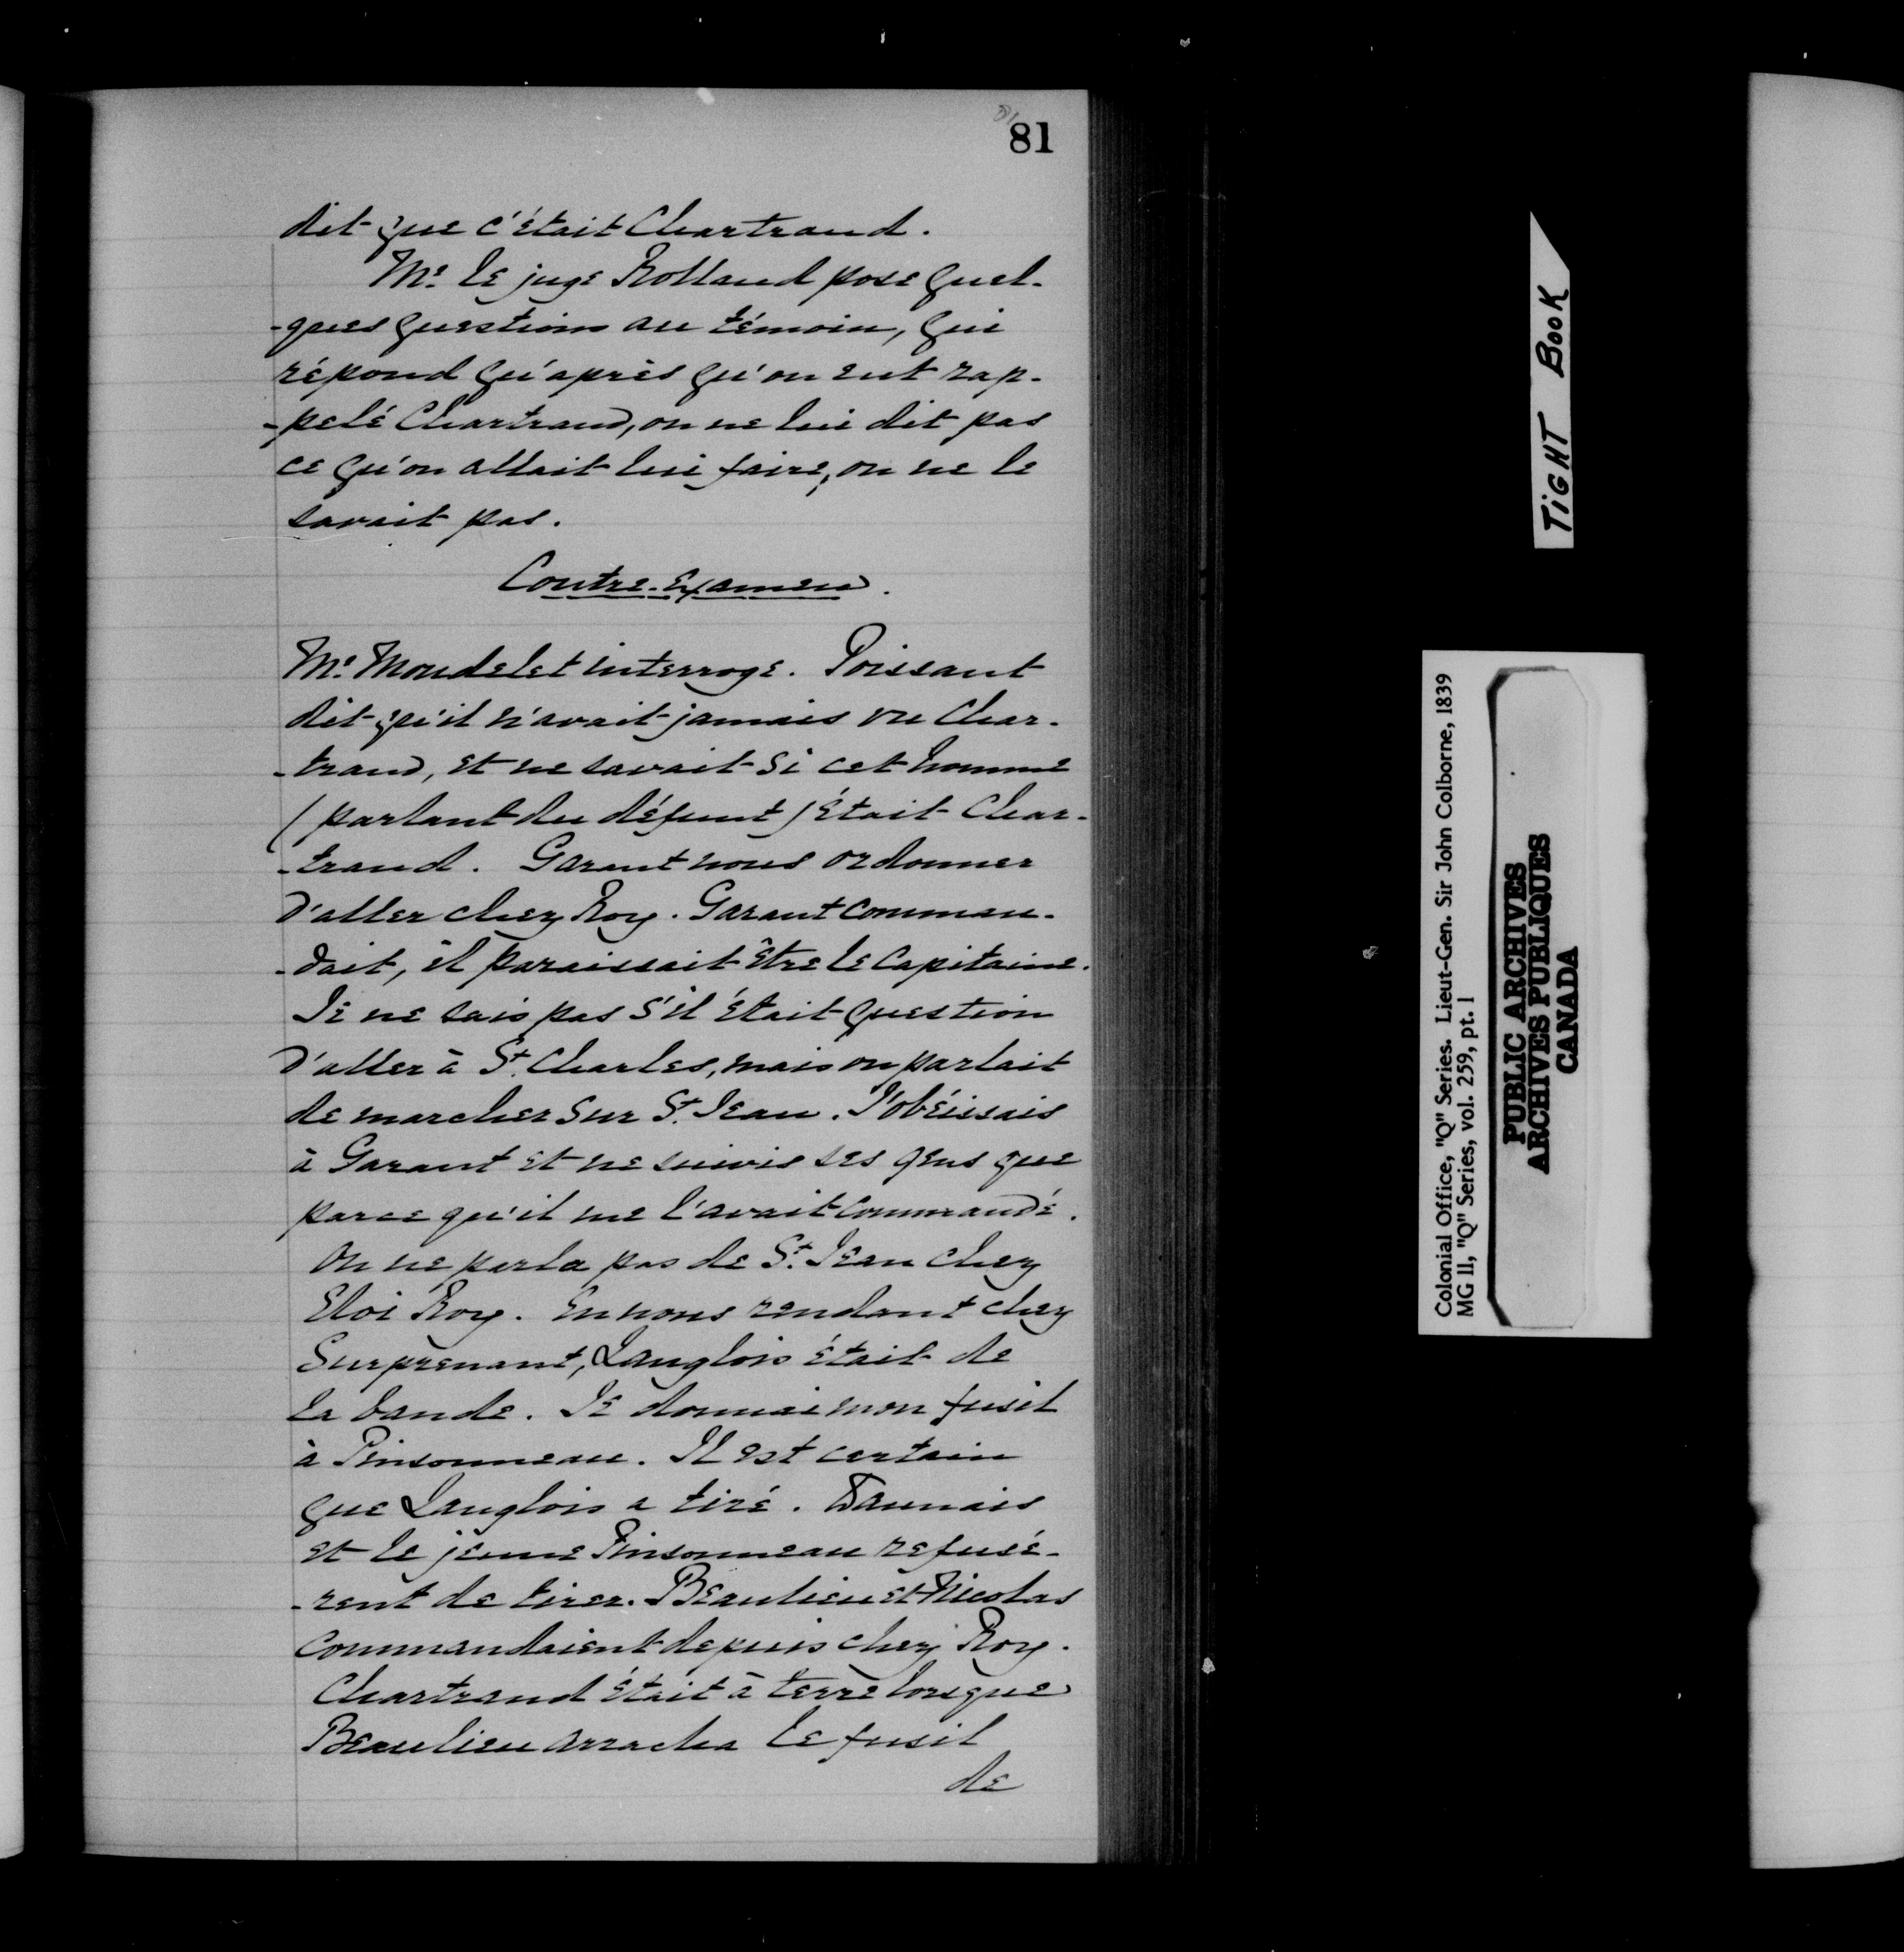 81
81
dit que c'était Chartrand.
Mr. le juge Rolland pose quel-
-ques questions au témoin, qui
répond qu'après qu'on eut rap-
-pelé Chartrand, on ne lui dit pas
ce qu'on allait lui faire, on ne le
savait pas.
Contre-Examen.
Mr. Mondelet interroge. Poissant
dit qu'il n'avait jamais vu Char-
-trand, et ne savait si cet homme
(parlant du défunt) était Char-
-trand. Garant nous ordonner
d'aller chez Roy. Garant comman-
-dait, il paraissait être le Capitaine.
Je ne sais pas s'il était question
d'aller à St. Charles, mais on parlait
de marcher sur St. Jean. J'obéissais
à Garant et ne suivis ses gens que
parce qu'il me l'avait commandé.
On ne parla pas de St. Jean chez
Eloi Roy. En nous rendant chez
Surprenant, Langlois était de
la bande. Je donnai mon fusil
à Pinsonneau. Il est certain
que Langlois a tiré. Daunais
et le jeune Pinsonneau refusé-
-rent de tirer. Beaulieu et Nicolas
commandaient depuis chez Roy.
Chartrand était à terre lorsque
Beaulieu arracha le fusil
de
TiGHT BOOK
Colonial Office, "Q" Series. Lieut-Gen. Sir John Colborne, 1839
MG 11, "Q" Series, vol. 259, pt. 1
PUBLIC ARCHIVES
ARCHIVES PUBLIQUES
CANADA